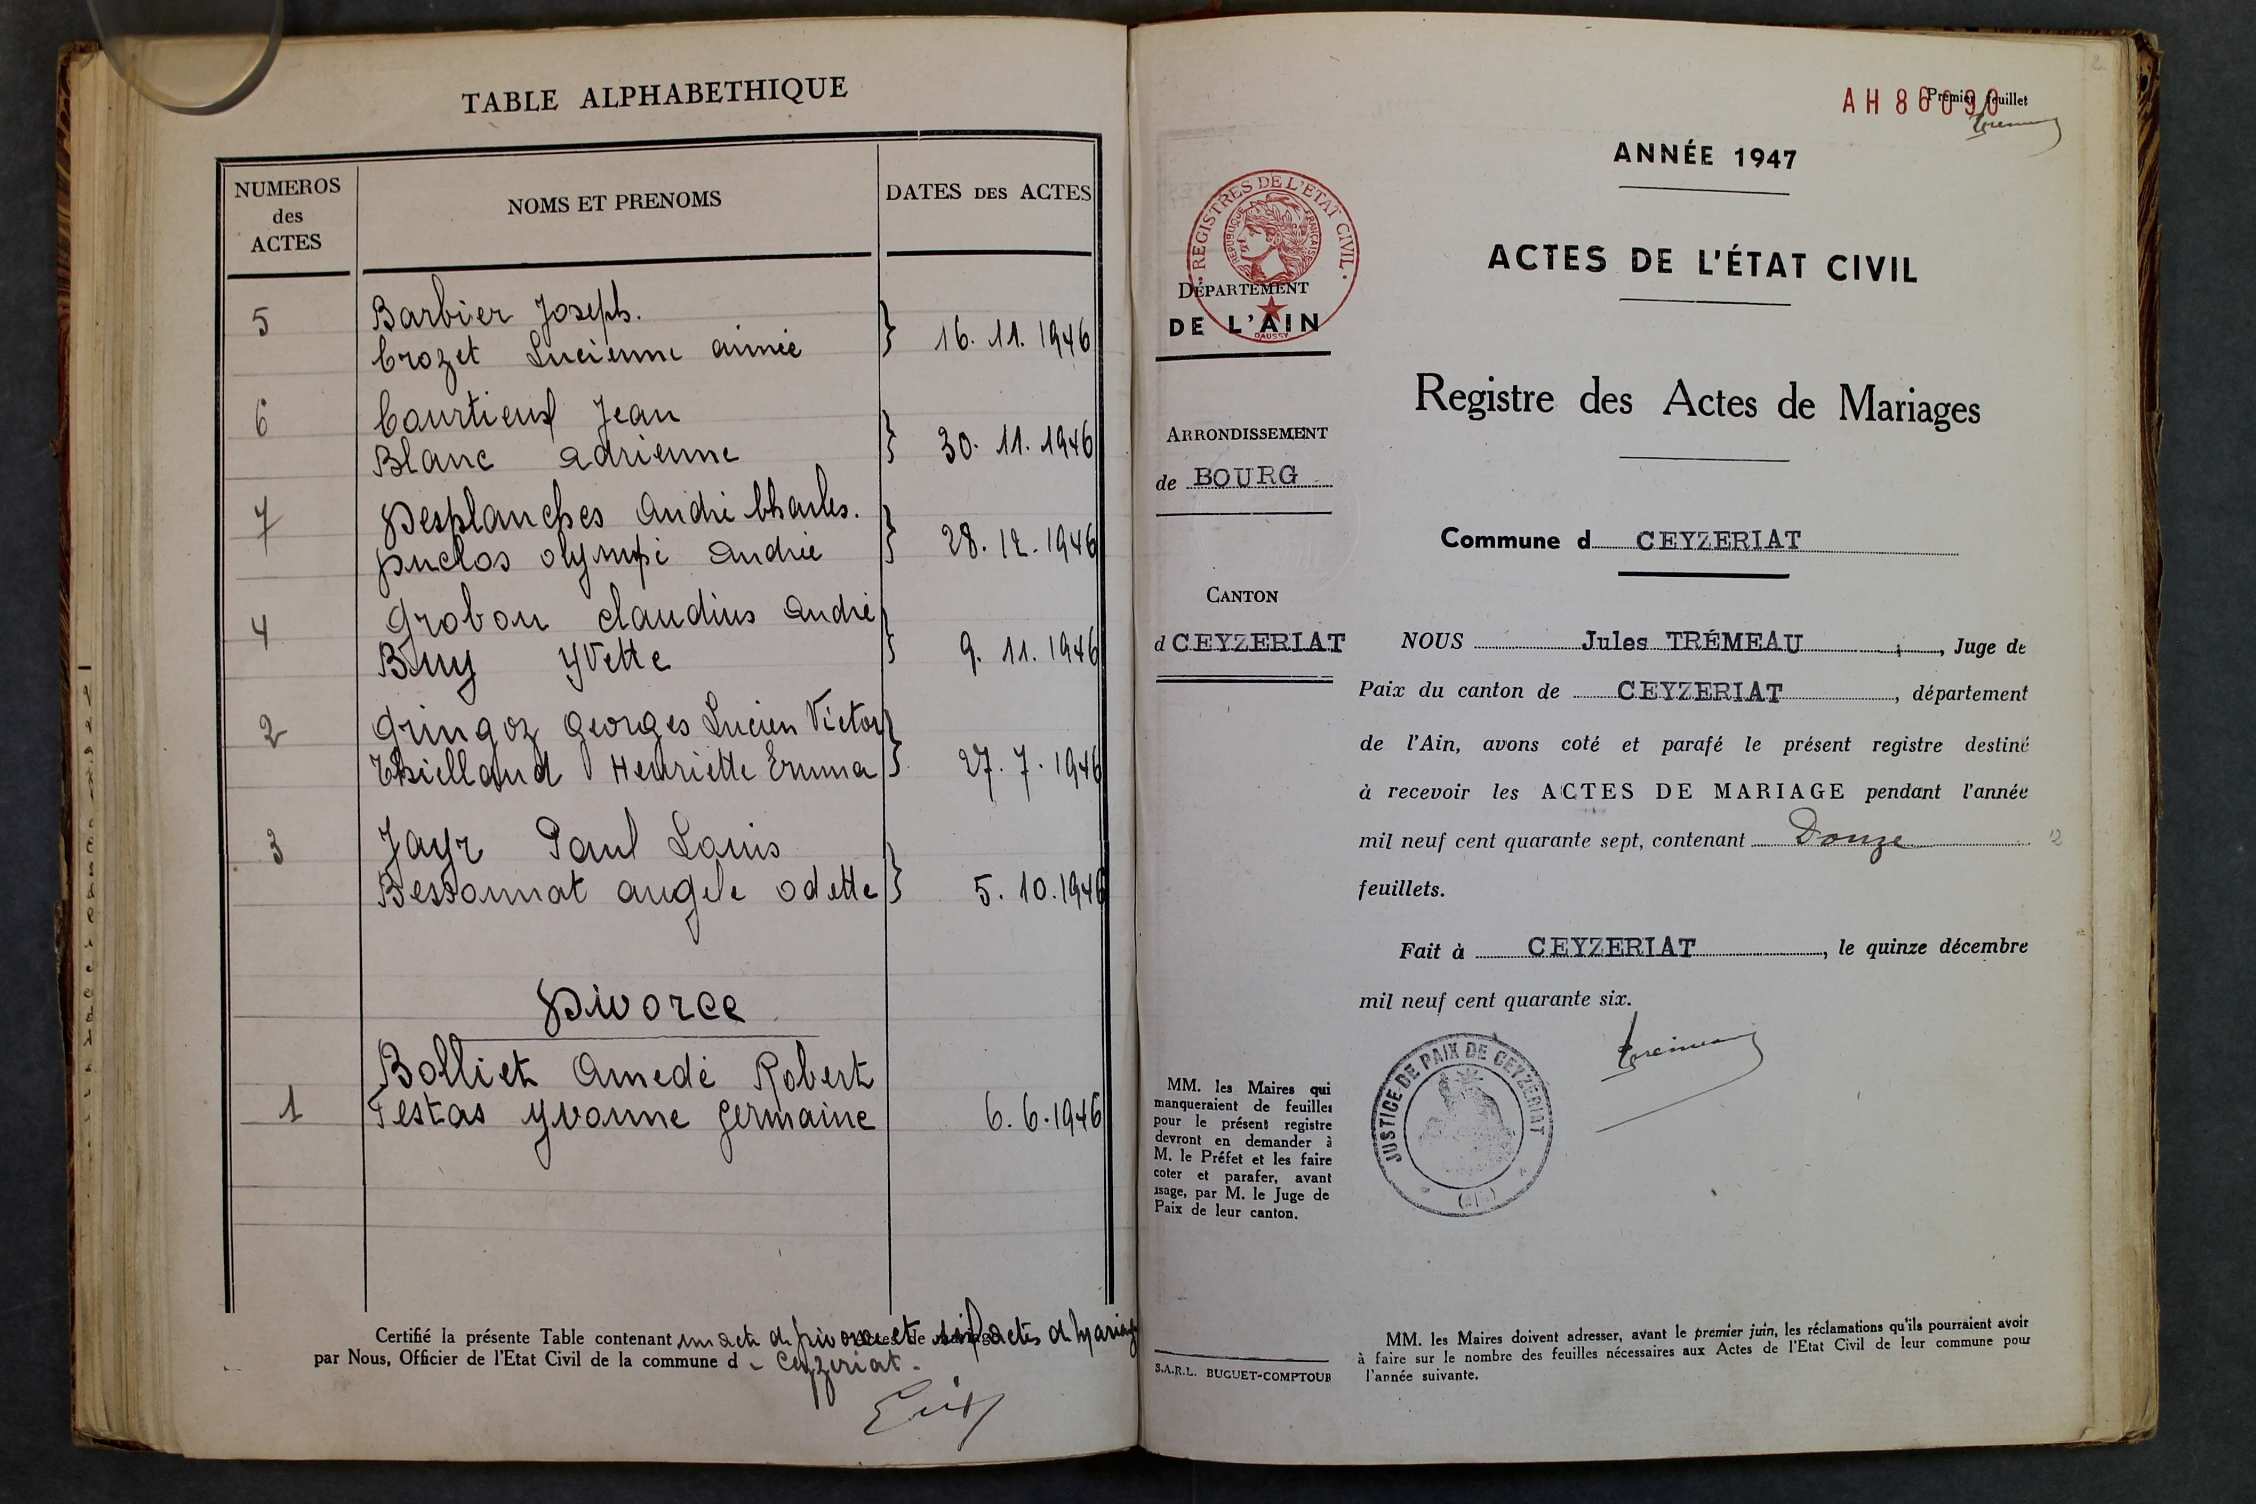 TABLE ALPHABETHIQUE
NUMEROS
des
ACTES
NOMS ET PRENOMS
DATES DES ACTES
5
Barbier Joseph.
Crozet Lucienne aimée
16. 11. 1946
6
Courtieux Jean
Blanc adrienne
30. 11. 1946
7
Desplanches André Charles.
Duclos olympe andrée
28. 12. 1946
4
Grobon claudius andré
Buy yvette
9. 11. 1946
2
Gringoz georges Lucien Victor
Thielland Henriette Emma
27. 7. 1946
3
Jayr Paul Louis
Bessonnat angèle odette
5. 10. 1946
Divorce
Bolliet Amedé Robert
1
Testas yvonne germaine
6. 6. 1946
Certifié la présente Table contenant un acte de divorce et six actes de mariage
par Nous, Officier de l'Etat Civil de la commune d - Ceyzeriat -
AH 86090
Premier feuillet
ANNÉE 1947
ACTES DE L'ÉTAT CIVIL
REGISTRES DE L'ETAT CIVIL
REPUBLIQUE FRANÇAISE
DAUSSY
DÉPARTEMENT
DE L'AIN
Registre des Actes de Mariages
ARRONDISSEMENT
de BOURG
Commune d CEYZERIAT
CANTON
d CEYZERIAT
NOUS Jules TRÉMEAU, Juge de
Paix du canton de CEYZERIAT, département
de l'Ain, avons coté et parafé le présent registre destiné
à recevoir les ACTES DE MARIAGE pendant l'année
mil neuf cent quarante sept, contenant Douze 12
feuillets.
Fait à CEYZERIAT, le quinze décembre
mil neuf cent quarante six.
JUSTICE DE PAIX DE CEYZERIAT
MM. les Maires qui
manqueraient de feuilles
pour le présent registre
devront en demander à
M. le Préfet et les faire
coter et parafer, avant
usage, par M. le Juge de
Paix de leur canton.
S.A.R.L. BUGUET-COMPTOUR
MM. les Maires doivent adresser, avant le premier juin, les réclamations qu'ils pourraient avoir
à faire sur le nombre des feuilles nécessaires aux Actes de l'Etat Civil de leur commune pour
l'année suivante.